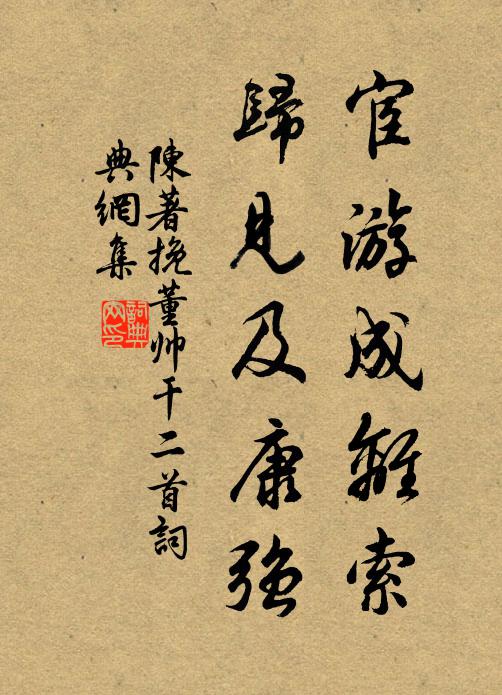 宦游成離索
歸見及康強
陳著挽董帅干二首詞
典網集
詞典网印